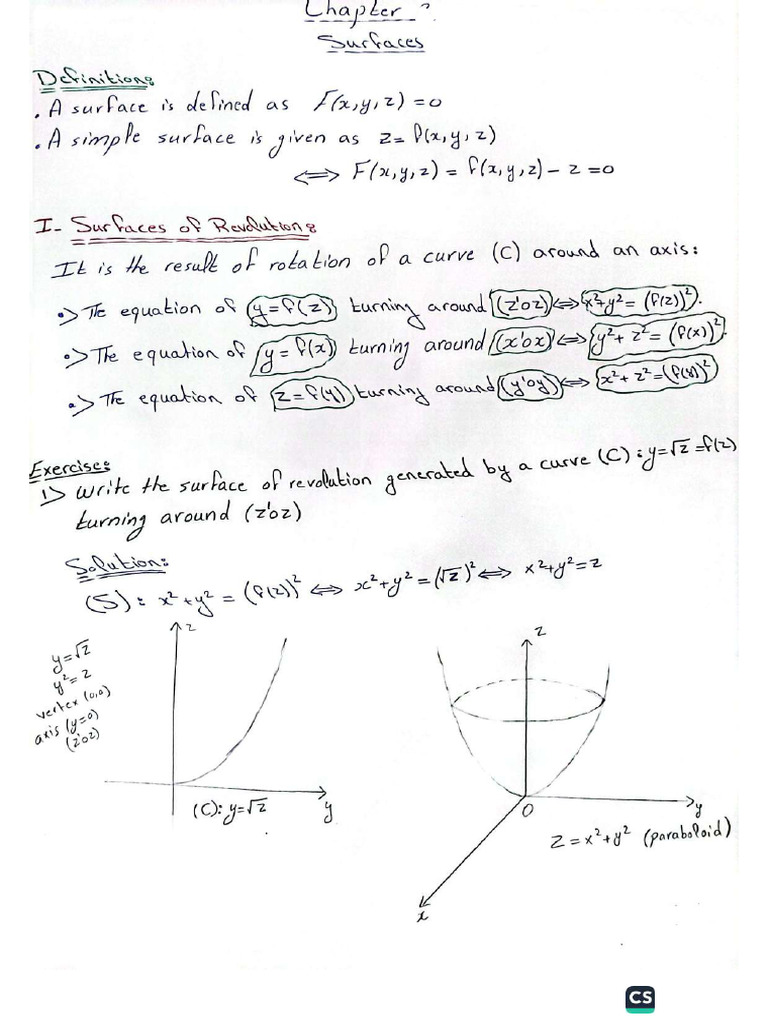 Chapter
Surfaces
Definition:
. A surface is defined as F(x,y,z) = 0
. A simple surface is given as z = f(x,y,z)
⟺ F(x,y,z) = f(x,y,z) - z = 0
I- Surfaces of Revolution:
It is the result of rotation of a curve (C) around an axis:
•> The equation of y = f(z) turning around (z'oz) ⟺ x²+y² = (f(z))².
•> The equation of y = f(x) turning around (x'ox) ⟺ y²+z² = (f(x))²
•> The equation of z = f(y) turning around (y'oy) ⟺ x²+z² = (f(y))²
Exercise:
1> Write the surface of revolution generated by a curve (C): y=√z = f(z)
turning around (z'oz)
Solution:
(S): x²+y² = (f(z))² ⟺ x²+y² = (√z)² ⟺ x²+y² = z
y=√z
y²=z
vertex (0,0)
axis (y=0)
(z'oz)
z
(C): y=√z
y
z
O
y
z = x²+y² (paraboloid)
x
CS